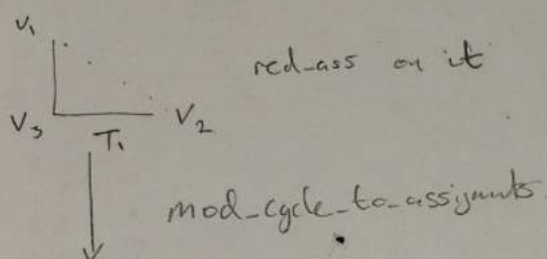 V₁
red-ass on it
V₃ V₂
T₁
mod_cycle_to_assignmts